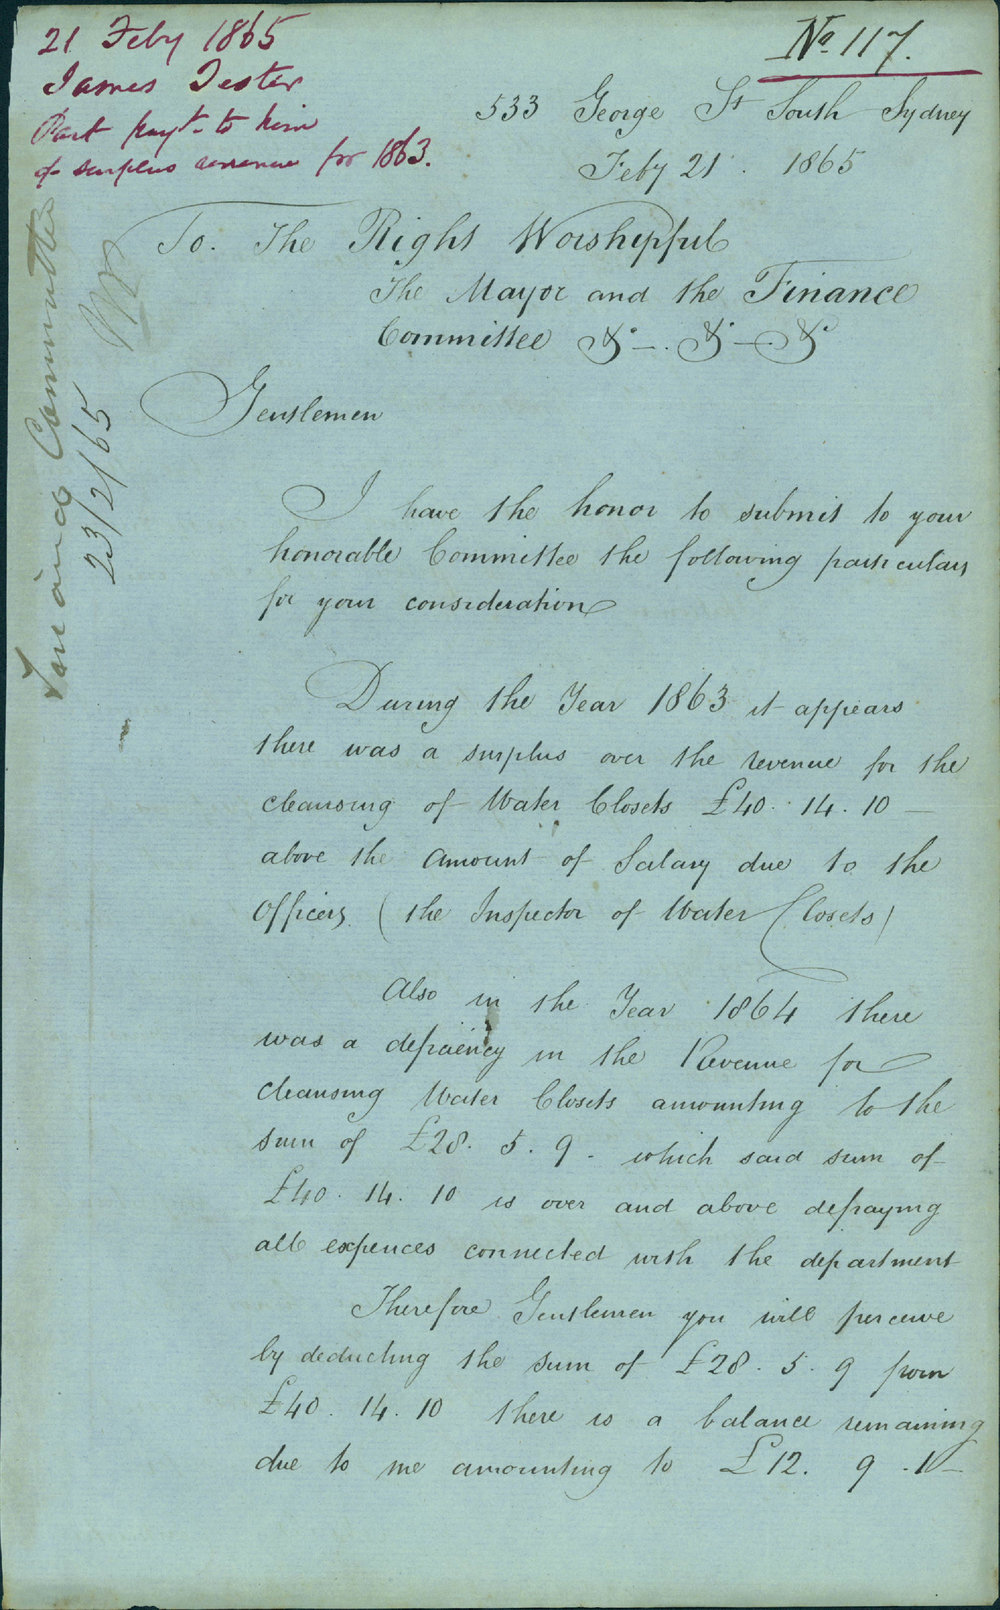 21 Feby 1865
James Tester
Part payt. to him
of surplus revenue for 1863.
No. 117.
533 George St South Sydney
Feby 21. 1865
To. The Right Worshipful
The Mayor and the Finance
Committee &c. &c. &c
Gentlemen
I have the honor to submit to your
honorable Committee the following particulars
for your consideration
During the Year 1863 it appears
there was a surplus over the revenue for the
cleansing of Water Closets £40. 14. 10
above the amount of Salary due to the
Officers (the Inspector of Water Closets)
Also in the Year 1864 there
was a deficiency in the Revenue for
cleansing Water Closets amounting to the
sum of £28. 5. 9. which said sum of
£40. 14. 10 is over and above defraying
all expences connected with the department
Therefore Gentlemen you will perceive
by deducting the sum of £28. 5. 9 from
£40. 14. 10 there is a balance remaining
due to me amounting to £12. 9. 1
Finance Committee
23/2/65